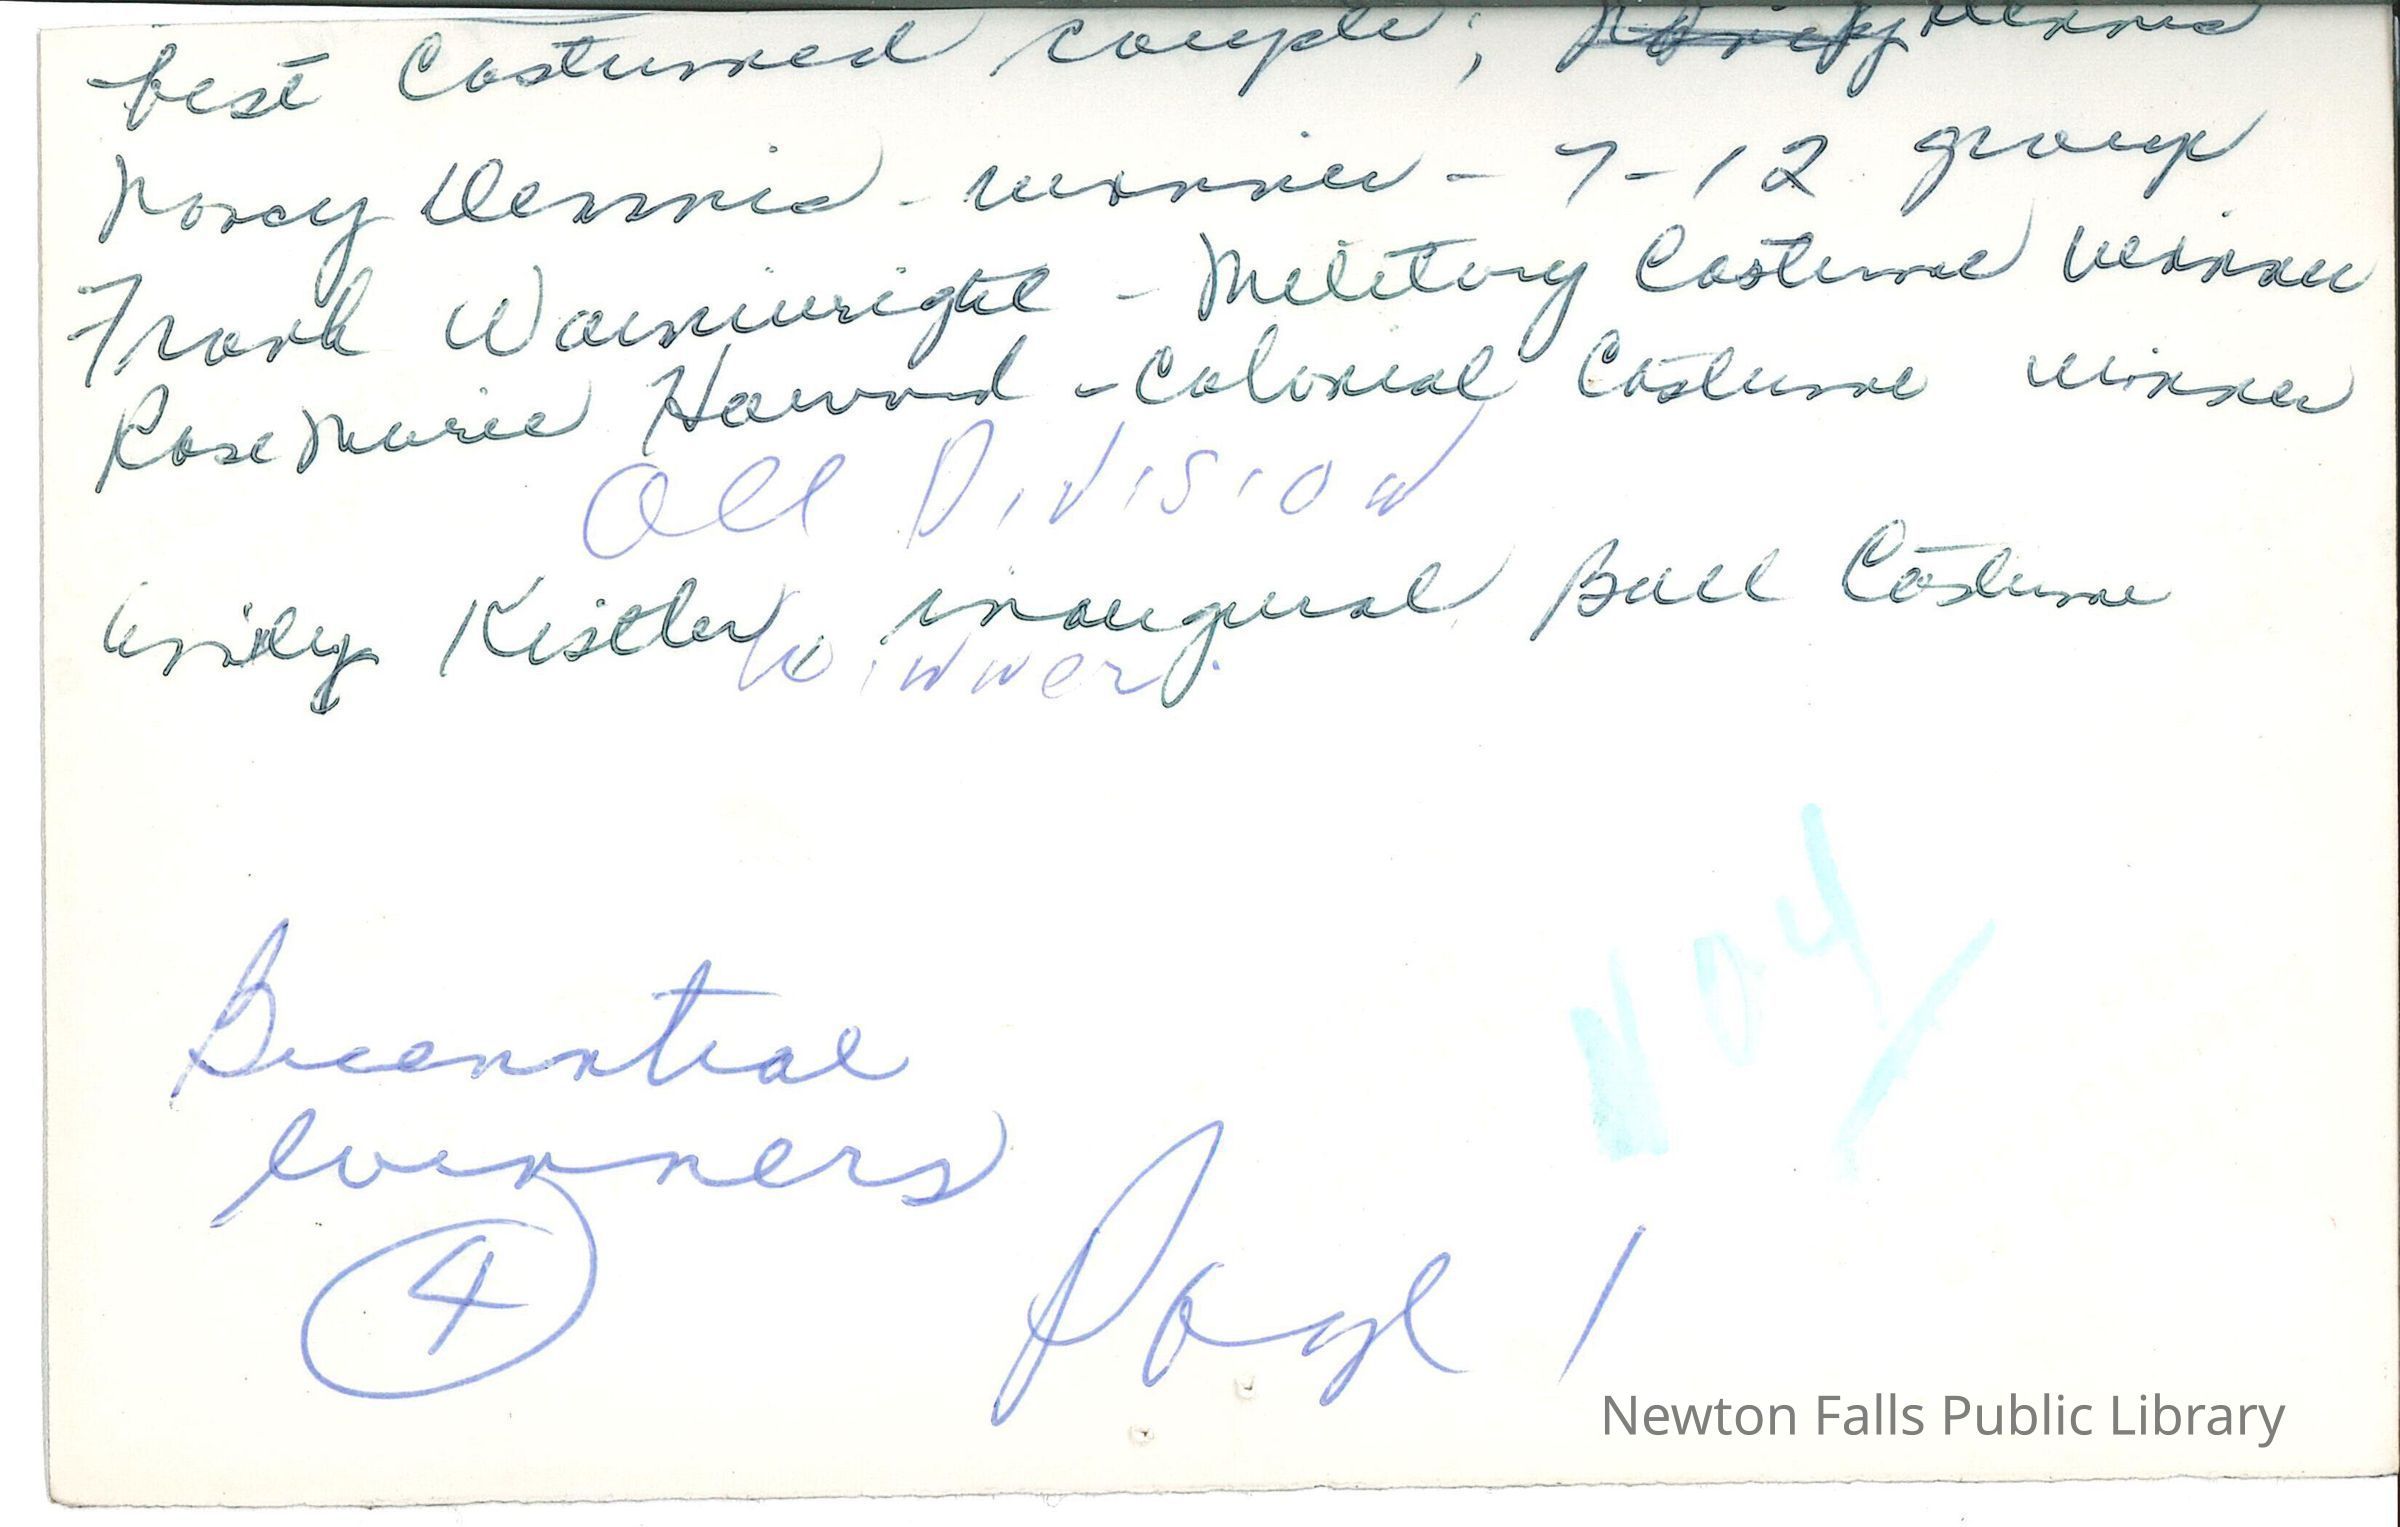 best Costumed couple; Dennis
Nancy Dennis - winner - 7-12 group
Frank Wainwright - Military Costume winner
Rose Marie Howard - Colonial Costume winner
All DIVISION
Emily Kistler, inaugural Ball Costume
Winner.
Bicenntial
winners
4
Page 1
Newton Falls Public Library